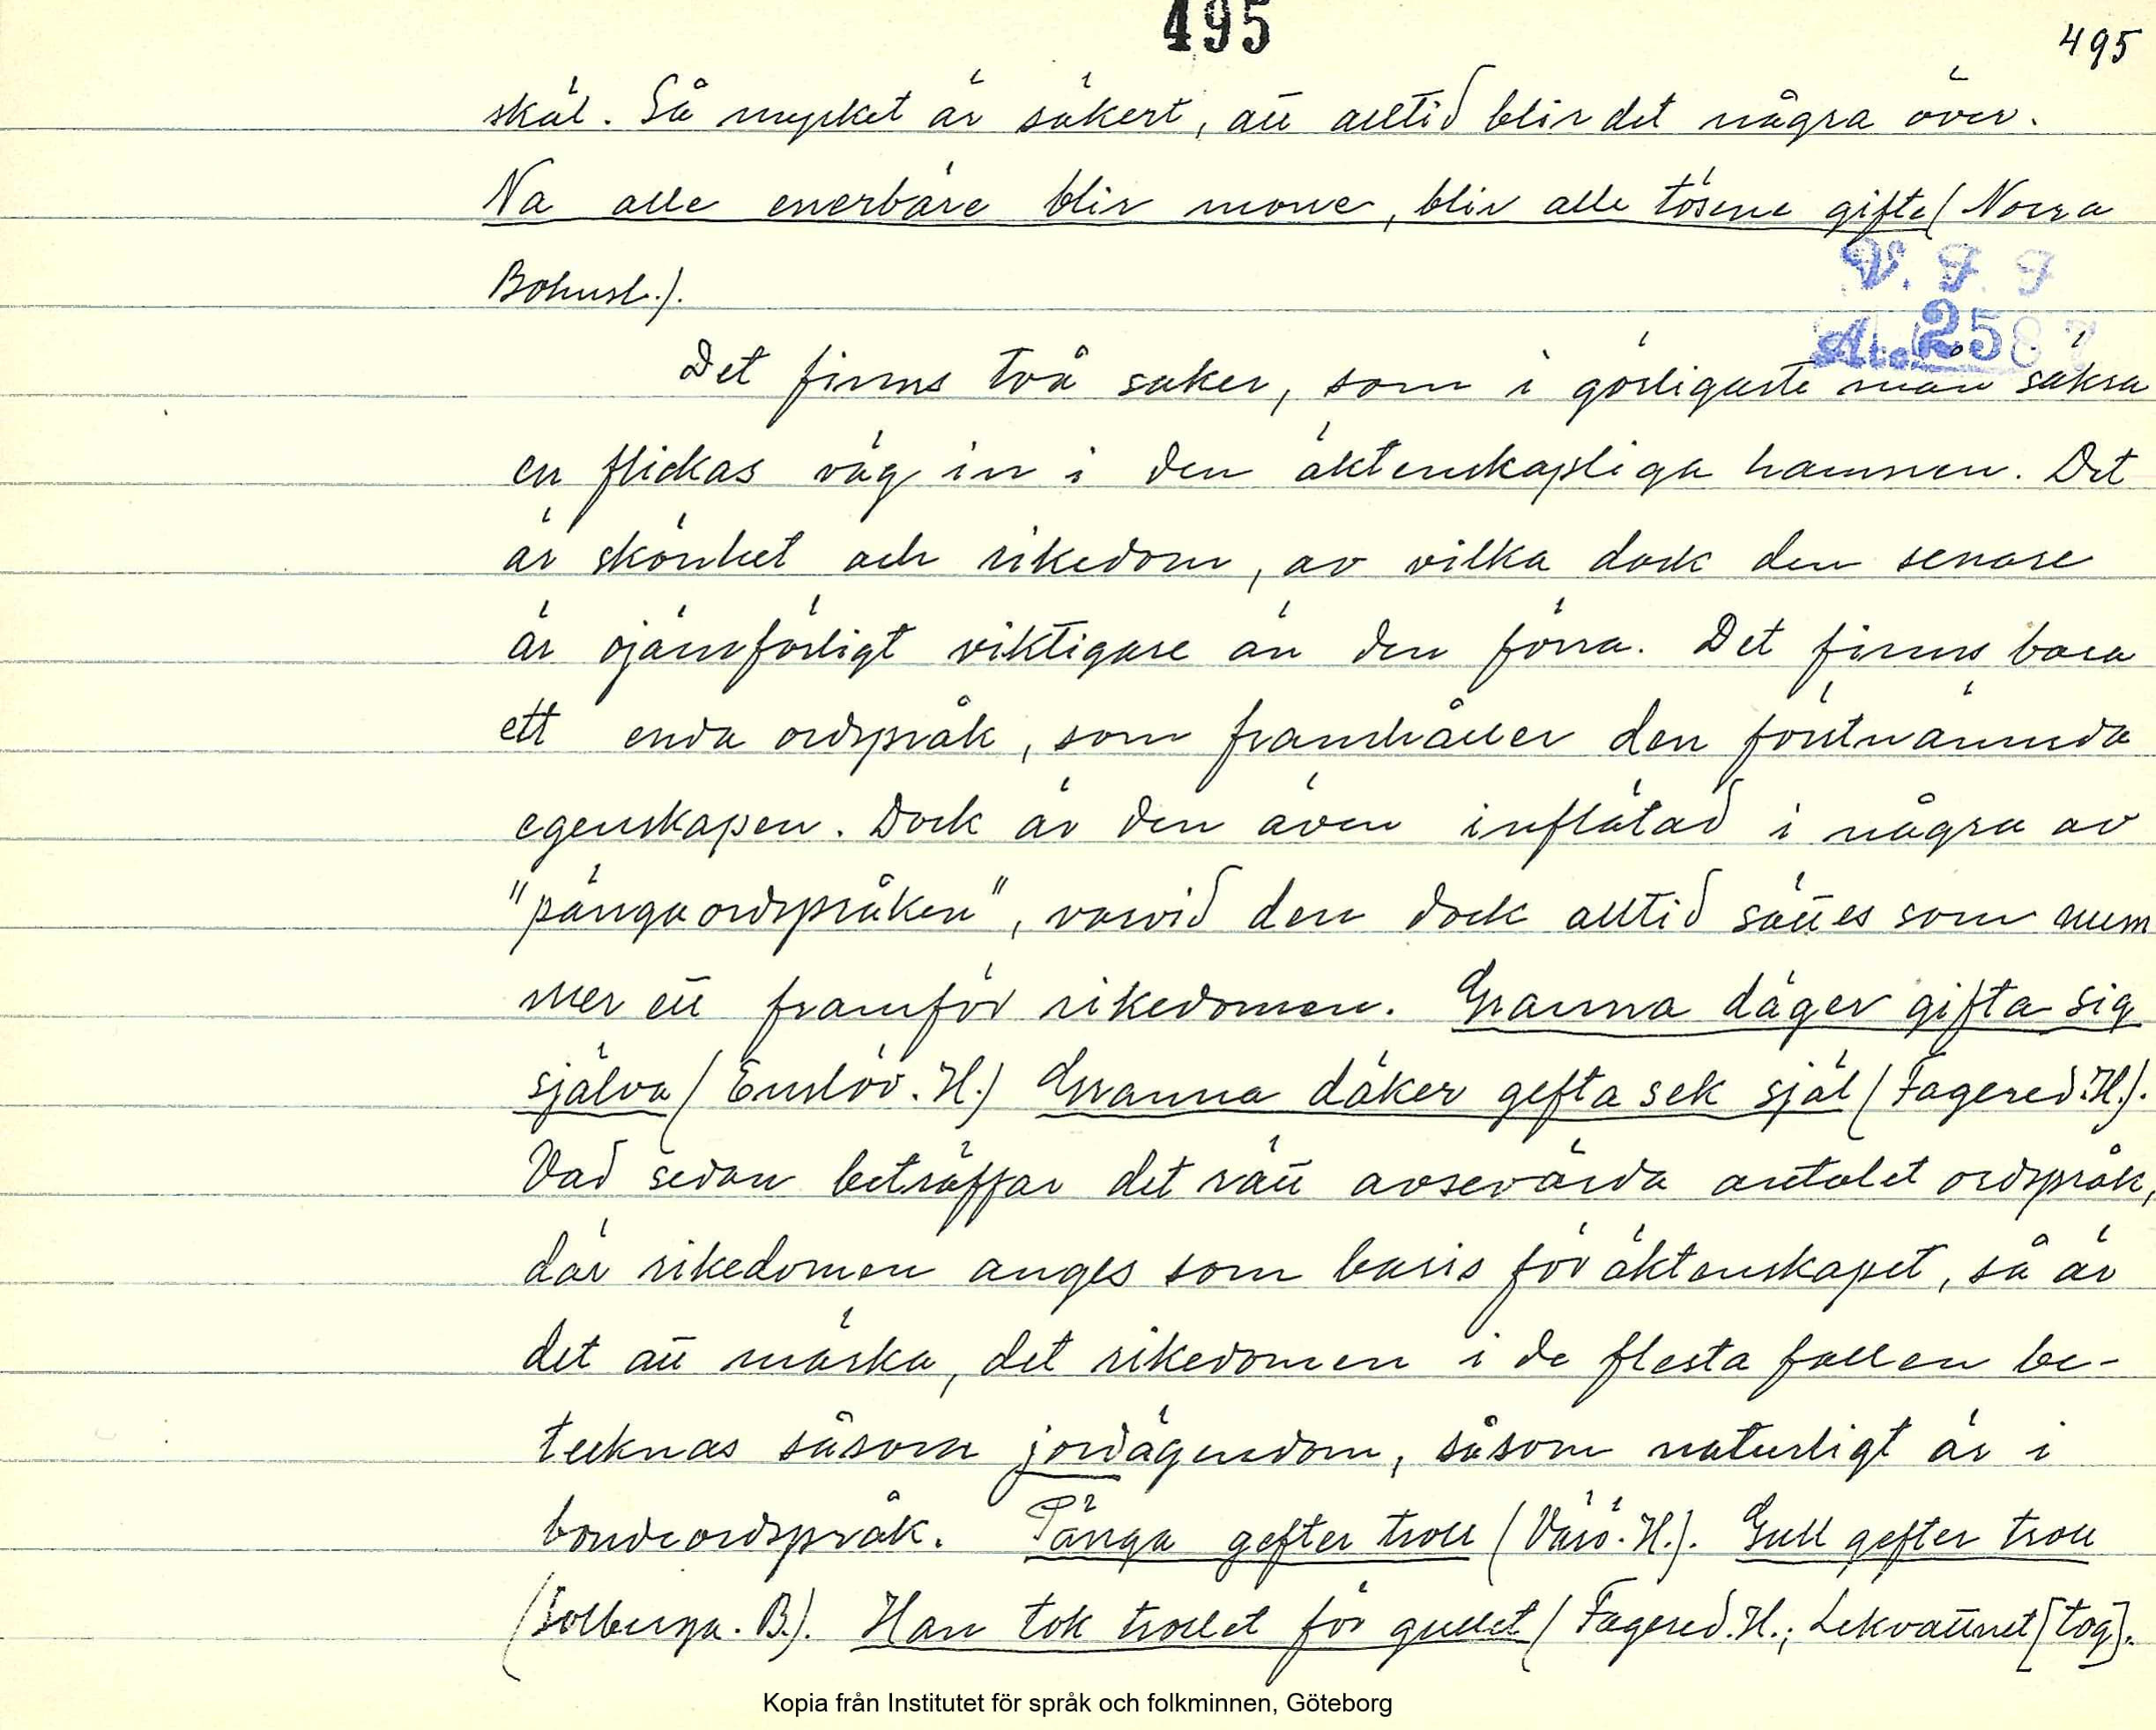 495
495
skäl. Så mycket är säkert, att alltid blir det några över.
Na alle enerbäre blir mone, blir alle tösene gifte (Norra
Bohusl.).
V. F. F
Acc. 2587
Det finns två saker, som i görligaste mån säkra
en flickas väg in i den äktenskapliga hamnen. Det
är skönhet och rikedom, av vilka dock den senare
är ojämförligt viktigare än den förra. Det finns bara
ett enda ordspråk, som framhåller den förstnämnda
egenskapen. Dock är den även inflätad i några av
"pängaordspråken", varvid den dock alltid sättes som num
mer ett framför rikedomen. Granna däger gifta sig
själva (Enslöv. H.) Granna däker gefta sek själ (Fagered. H.).
Vad sedan beträffar det rätt avsevärda antalet ordspråk,
där rikedomen anges som basis för äktenskapet, så är
det att märka, det rikedomen i de flesta fallen be-
tecknas såsom jordägendom, såsom naturligt är i
bondeordspråk. Pänga gefter troll (Värö. H.). Gull gefter troll
(Solberga. B.). Han tok trollet för gullet (Fagered. H.; Lekvattnet [tog].
Kopia från Institutet för språk och folkminnen, Göteborg